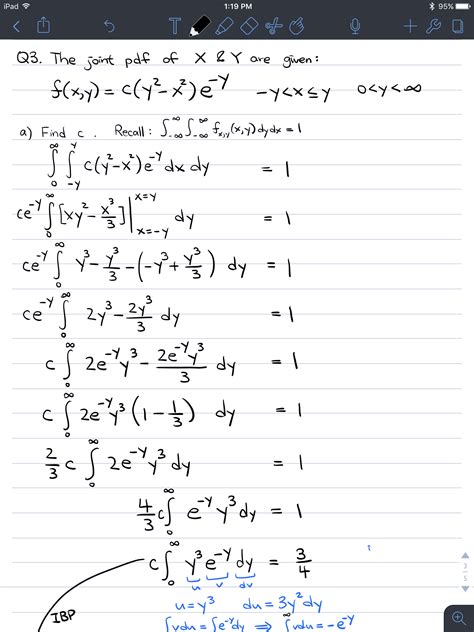 iPad 1:19 PM 95%
Q3. The joint pdf of X & Y are given:
f(x,y) = c(y²-x²)e^-y -y<x≤y 0<y<∞
a) Find c. Recall: ∫_-∞^∞ ∫_-∞^∞ f_x,y(x,y) dy dx = 1
∫_0^∞ ∫_-y^y c(y²-x²)e^-y dx dy = 1
ce^-y ∫_0^∞ [xy² - x³/3] |_x=-y^x=y dy = 1
ce^-y ∫_0^∞ y³ - y³/3 - (-y³ + y³/3) dy = 1
ce^-y ∫_0^∞ 2y³ - 2y³/3 dy = 1
c ∫_0^∞ 2e^-y y³ - 2e^-y y³/3 dy = 1
c ∫_0^∞ 2e^-y y³ (1 - 1/3) dy = 1
2/3 c ∫_0^∞ 2e^-y y³ dy = 1
4/3 c ∫_0^∞ e^-y y³ dy = 1
c ∫_0^∞ y³ e^-y dy = 3/4
u v dv
u = y³ du = 3y² dy
IBP ∫vdu = ∫e^-y dy ⇒ ∫vdu = -e^-y
3
5